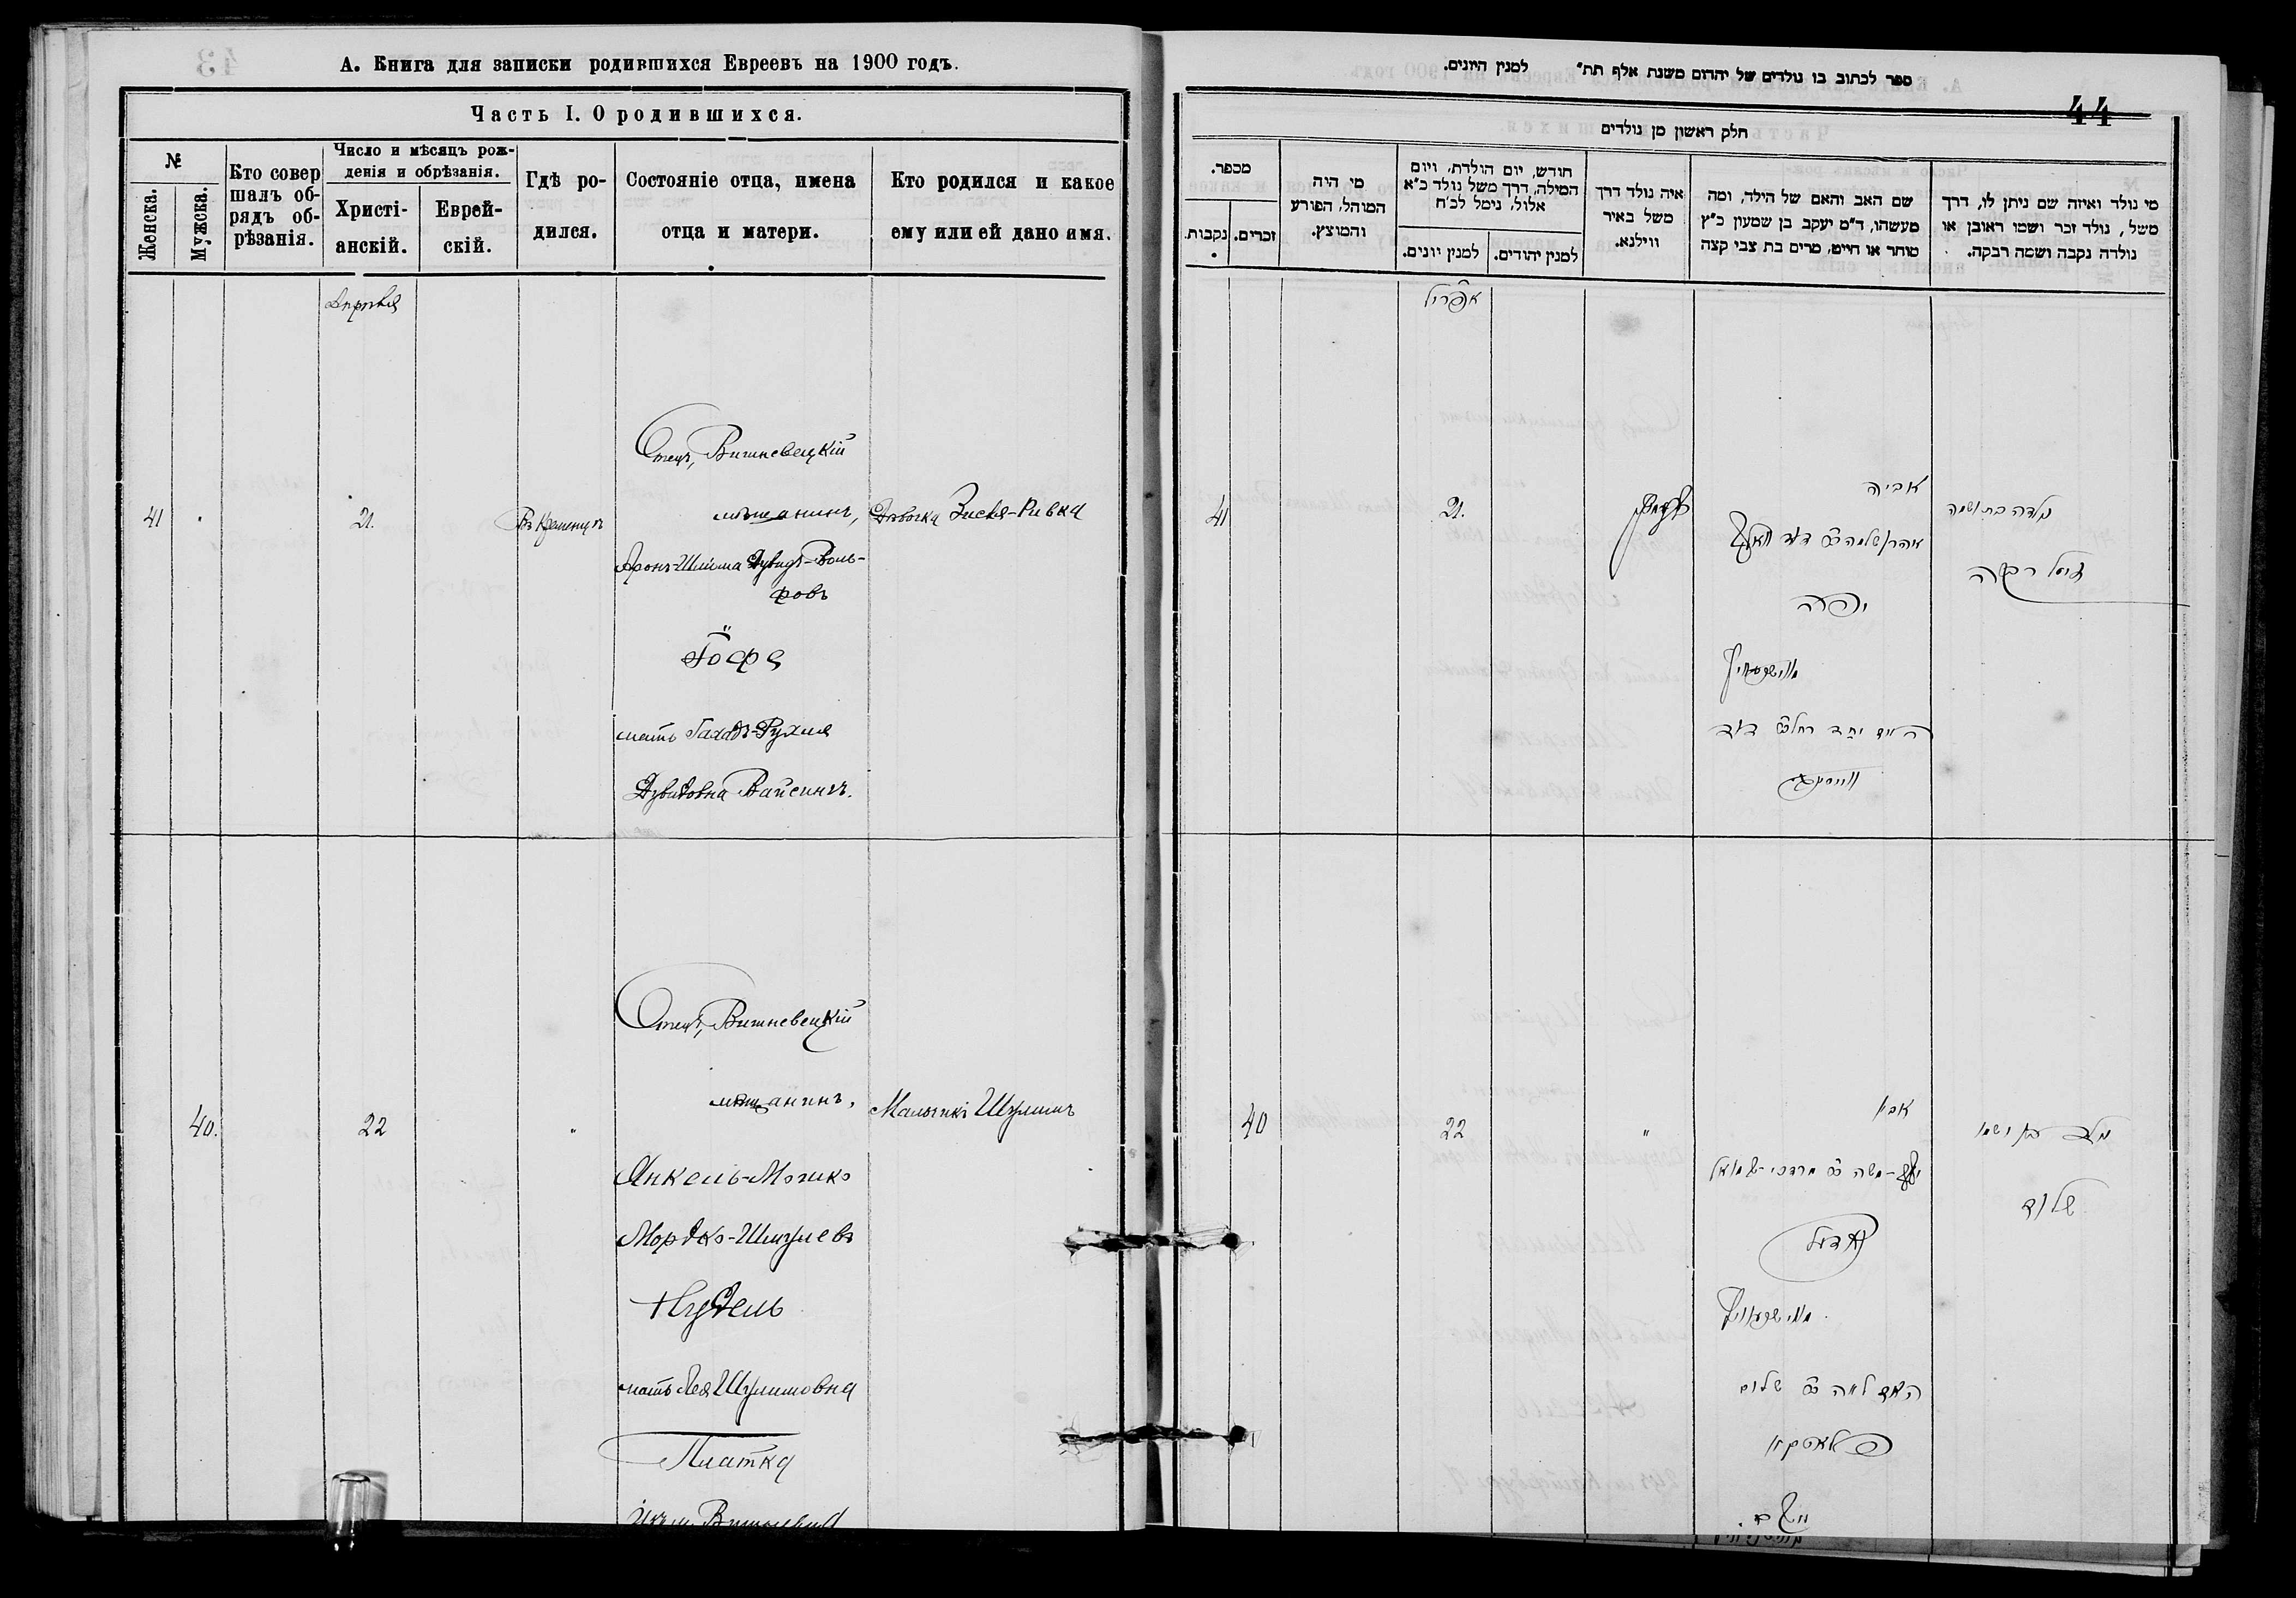 А. Книга для записки родившихся Евреевъ на 1900 годъ.
Часть I. О родившихся.
№
Женска.
Мужска.
Кто совер
шалъ об-
рядъ об-
рѣзанія.
Число и мѣсяцъ рож-
денія и обрѣзанія.
Христі-
анскій.
Еврей-
скій.
Гдѣ ро-
дился.
Состояніе отца, имена
отца и матери.
Кто родился и какое
ему или ей дано имя.
Апрѣля
41
21.
Отецъ, Вишневецкій
мѣщанинъ,
Аронъ-Шлома Дувидъ-Воль-
фовъ
мать
Дувидовна
Дѣвочка Зисля-Ривка
40.
22
"
Отецъ, Вишневецкій
мѣщанинъ,
Янкель-Мошко
Мордко-Шмулевъ
Нудель
мать Лея Шулимовна
Платка
Мальчикъ Шулимъ
ספר לכתוב בו נולדים של יהדום משנת אלף תת״ למנין היונים.
44
חלק ראשון מן נולדים
מכפר.
נקבות.
זכרים.
מי היה
המוהל, הפורע
והמוצץ.
חודש, יום הולדת, ויום
המילה, דרך משל נולד כ״א
אלול, נימל לכ״ח
למנין יונים.
למנין יהודים.
איה נולד דרך
משל באיר
ווילנא.
שם האב והאם של הילד, ומה
מעשהו, ד״מ יעקב בן שמעון כ״ץ
סוחר או חייט, מרים בת צבי קצה
מי נולד ואיזה שם ניתן לו, דרך
משל, נולד זכר ושמו ראובן או
נולדה נקבה ושמה רבקה.
אפריל
41
21.
אביה
אהרן שלמה
דוד
יופה
רחל
דוד
נולדה בת ושמה
זיסל רבקה
40
22
"
אביו
משה
מרדכי-שמואל
נודעל
שלום
נולד בן ושמו
שלום